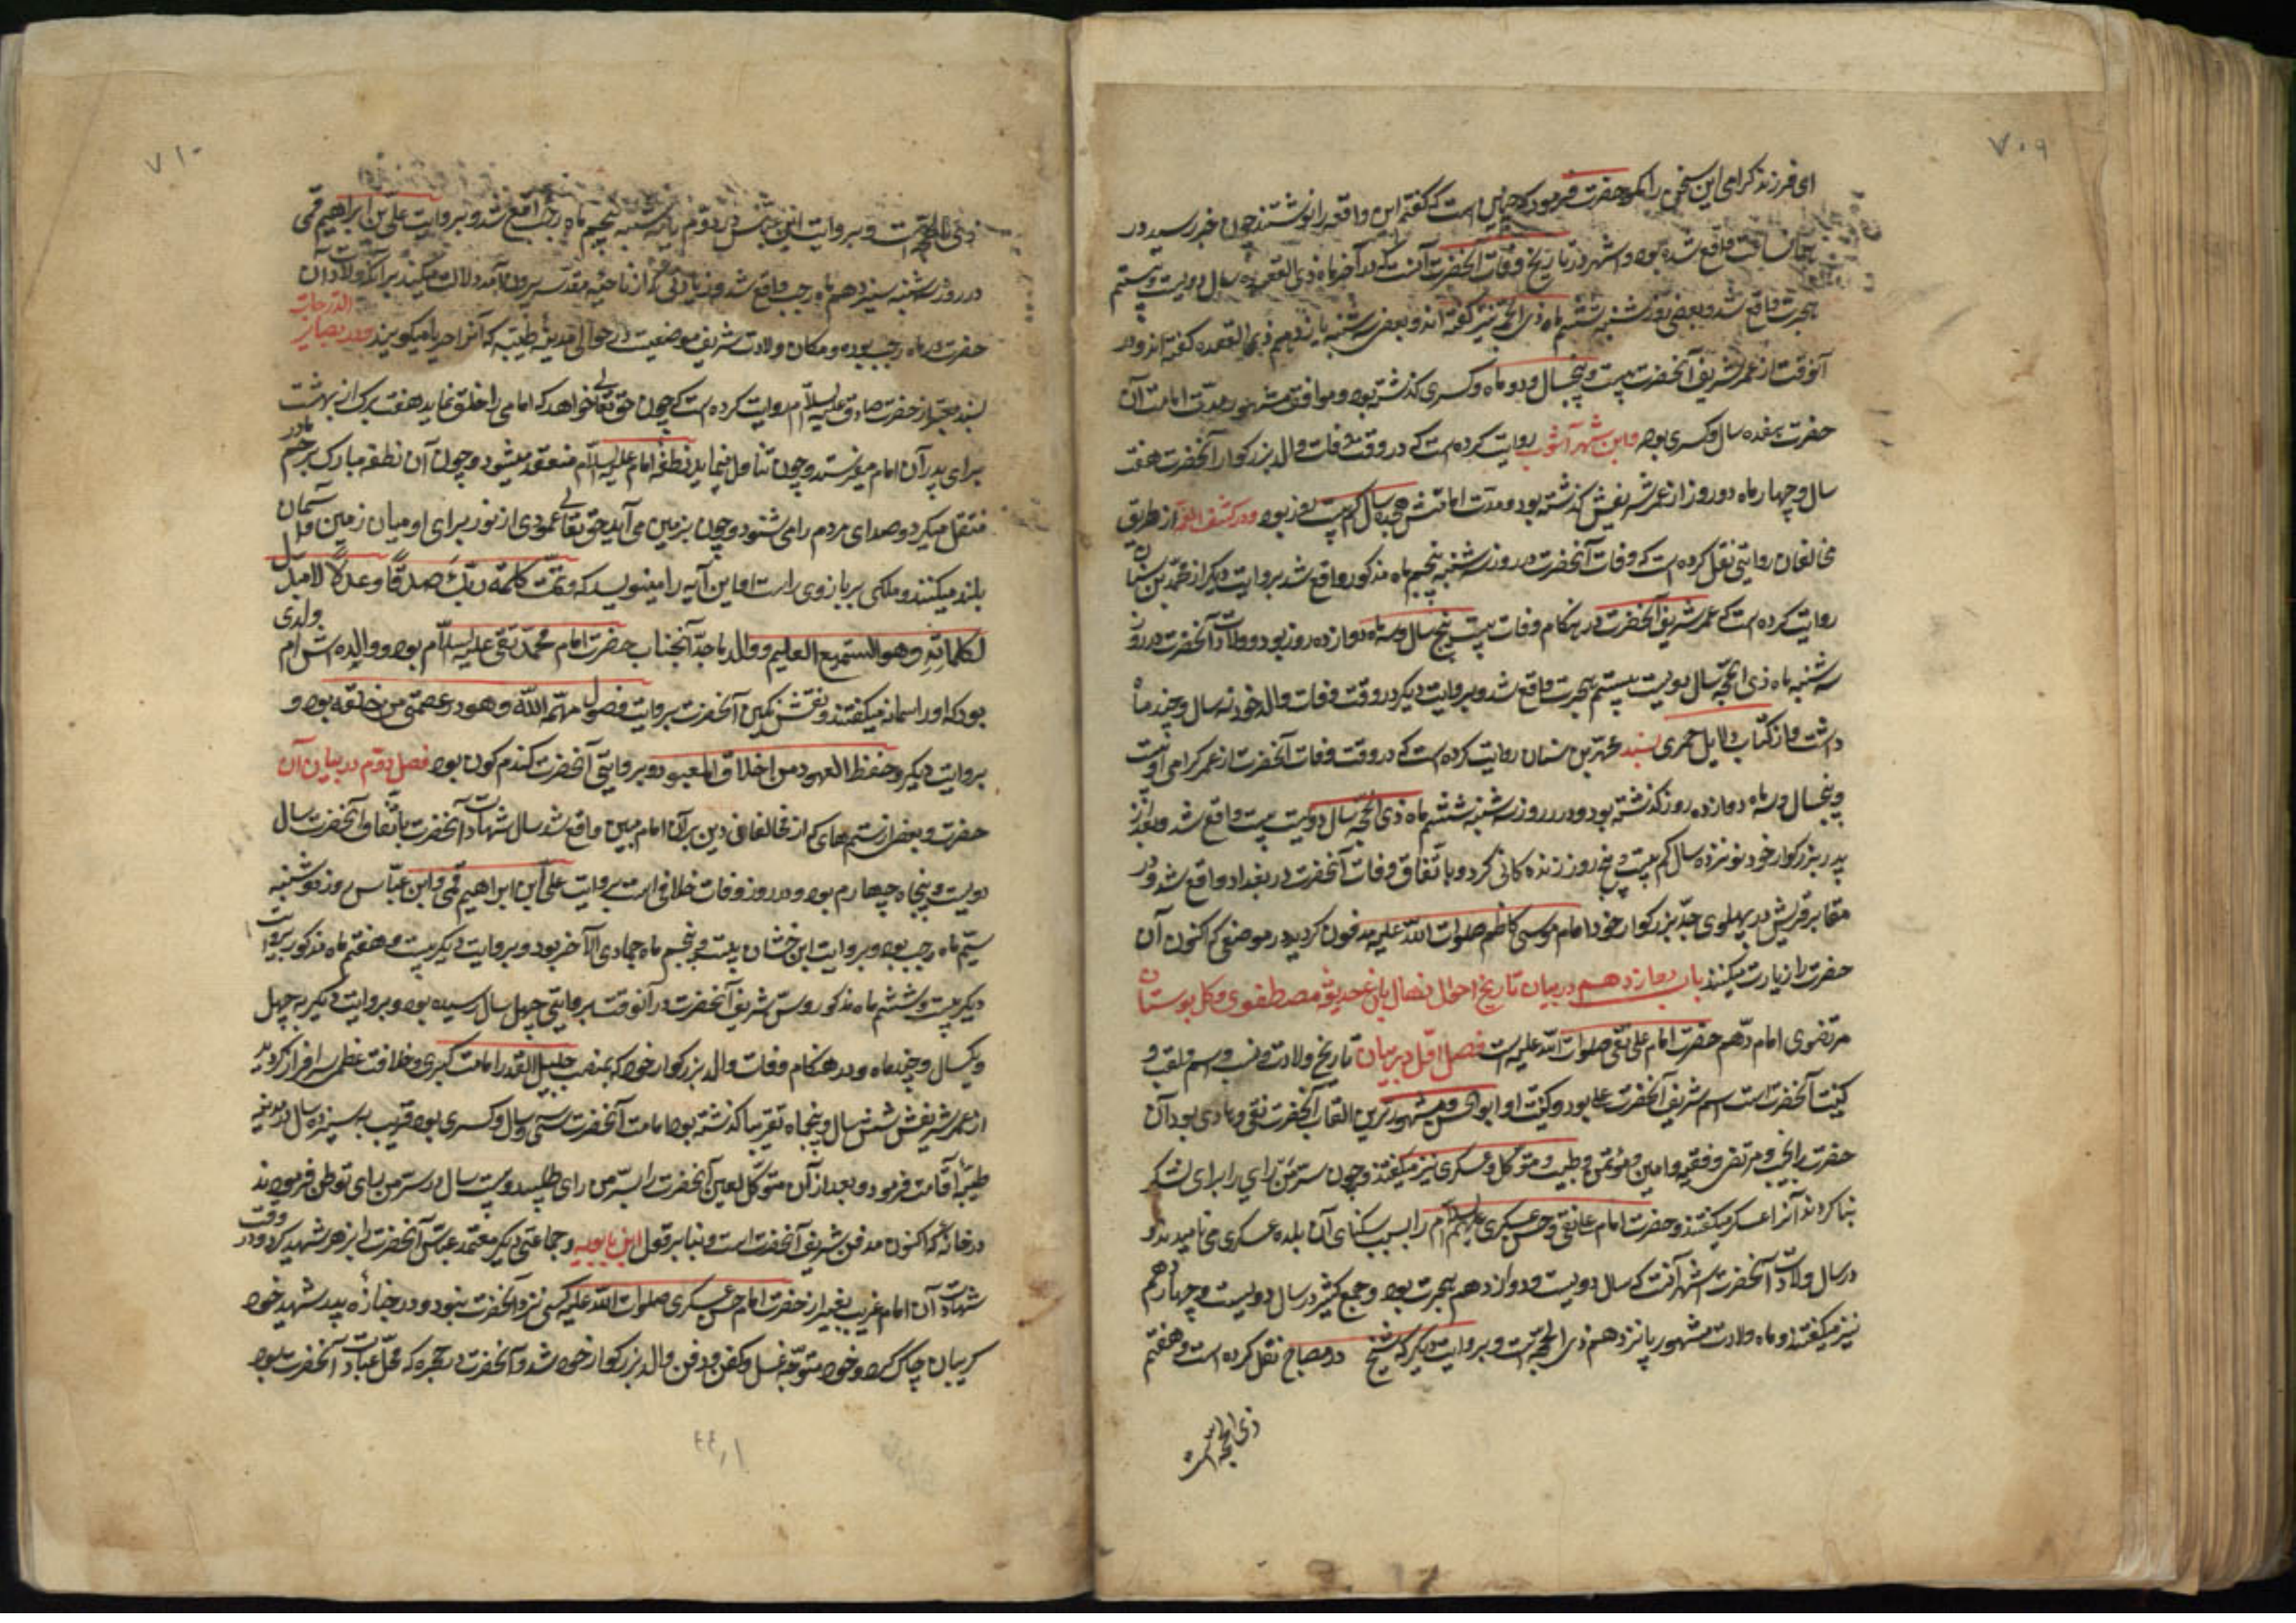 ۷۰۹
ای فرزند گرامی این سخن را مگو حضرت فرمود که چنین است که گفتم این واقعه را نوشتند چون خبر رسید در
همان ساعت واقع شده بود و اشهر در تاریخ وفات آنحضرت آنست که در آخر ماه ذی القعده سال دویست و بیستم
هجرت واقع شد و بعضی روز شنبه ششم ماه ذی الحجه نیز گفته اند و بعضی سه شنبه یازدهم ذی القعده گفته اند و در
آنوقت از عمر شریف آنحضرت بیست و پنجسال و دو ماه و کسری گذشته بود و موافق مشهور مدت امامت آن
حضرت هفده سال و کسری بود و ابن شهر آشوب روایت کرده است که در وقت وفات والد بزرگوار آنحضرت هفت
سال و چهار ماه دو روز از عمر شریفش گذشته بود و مدت امامتش هجده سال کم بیست روز بود و در کشف الغمه از طریق
مخالفان روایتی نقل کرده است که وفات آنحضرت در روز سه شنبه پنجم ماه مذکور واقع شد بروایت دیگر از محمد بن سنان
روایت کرده است که عمر شریف آنحضرت در هنگام وفات بیست پنج سال و سه ماه دوازده روز بود و ولادت آنحضرت در روز
سه شنبه ماه ذی الحجه سال دویست بیستم هجرت واقع شد و بروایت دیگر در وقت وفات والد خود نه سال و چند ماه
داشت و از کتاب دلایل حمیری بسند محمد بن سنان روایت کرده است که در وقت وفات آنحضرت از عمر گرامی او بیست
و پنجسال و سه ماه دوازده روز گذشته بود و در روز سه شنبه ششم ماه ذی الحجه سال دویست بیست واقع شد و بعد از
پدر بزرگوار خود نوزده سال کم بیست و پنج روز زندگانی کرد و باتفاق وفات آنحضرت در بغداد واقع شد و در
مقابر قریش در پهلوی جد بزرگوار خود امام موسی کاظم صلوات الله علیه مدفون گردید در موضعی که اکنون آن
حضرت را زیارت میکنند باب دوازدهم در بیان تاریخ احوال نهال باغ حدیقه مصطفوی و گل بوستان
مرتضوی امام دهم حضرت امام علی نقی صلوات الله علیه است فصل اول در بیان تاریخ ولادت و نسب و اسم و لقب و
کنیت آنحضرت است اسم شریف آنحضرت علی بود و کنیت او ابو الحسن و مشهورترین القاب آنحضرت نقی و هادی بود آن
حضرت را نجیب و مرتضی و فقیه و امین و مؤتمن و طیب و متوکل و عسکری نیز میگفتند و چون سر من رای را برای لشکر
بنا کردند آنرا عسکر میگفتند و حضرت امام علی نقی و حسن عسکری علیهم السلام را بسبب سکنای آن بلده عسکری می نامیدند و
در سال ولادت آنحضرت اشهر آنست که سال دویست و دوازدهم هجرت بود و جمع کثیر در سال دویست و چهاردهم
نیز میگفتند و ماه ولادت مشهور پانزدهم ذی الحجه است و بروایت دیگر که شیخ در مصباح نقل کرده است و هفتم
ذی الحجه است
۷۱۰
ذی الحجه است و بروایت ابن عیاش در دوم یا سه شنبه پنجم ماه رجب واقع شد و بروایت علی بن ابراهیم قمی
در روز سه شنبه سیزدهم ماه رجب واقع شد و زیارتی که از ناحیه مقدسه بیرون آمد دلالت میکند برآنکه ولادت آن
حضرت در ماه رجب بوده و مکان ولادت شریف موضعیست در حوالی مدینه طیبه که آنرا صریا میگویند و در بصایر الدرجات
بسند معتبر از حضرت صادق علیه السلام روایت کرده است که چون حق تعالی خواهد که امامی را خلق نماید هفت برگ از بهشت
برای پدر آن امام میفرستد و چون تناول مینماید نطفه امام علیه السلام منعقد میشود و چون آن نطفه مبارک برحم مادر
منتقل میگردد صدای مردم را می شنود و چون بزمین می آید حق تعالی عمودی از نور برای او میان زمین و آسمان
بلند میکند و ملکی بر بازوی راست او این آیه را مینویسد که و تمت کلمه ربک صدقا و عدلا لا مبدل
لکلماته و هو السمیع العلیم و والد ماجد آنجناب حضرت امام محمد تقی علیه السلام بود و والده اش ام ولدی
بود که او را سمانه میگفتند و نقش نگین آنحضرت بروایت فصول مهمه الله و هود عصمتی من خلقه بود و
بروایت دیگر و حفظ العهود من اخلاق المعبود و بروایتی آنحضرت گندم گون بود فصل دوم در بیان آن
حضرت و بعضی از ستم های که از مخالفان دین برآن امام مبین واقع شد سال شهادت آنحضرت باتفاق آنحضرت سال
دویست و پنجاه چهارم بود و در روز وفات خلافی است بروایت علی ابن ابراهیم قمی و ابن عباس روز دوشنبه
سیم ماه رجب بود و بروایت ابن خشاب بیست و پنجم ماه جمادی الآخر بود و بروایت دیگر بیست و هفتم ماه مذکور بروایت
دیگر بیست و ششم ماه مذکور و سن شریف آنحضرت در آنوقت بروایتی چهل سال رسیده بود و بروایت دیگر به چهل
و یکسال و چند ماه و در هنگام وفات والد بزرگوار خود که بمنصب جلیل القدر امامت کبری و خلافت عظمی سرافراز گردید
از عمر شریفش شش سال و پنجماه تقریبا گذشته بود امامت آنحضرت سی و سال و کسری بود قریب به سیزده سال در مدینه
طیبه اقامت فرمود و بعد از آن متوکل لعین آنحضرت را بسر من رای طلبید و بیست سال در سر من رای توطن فرمودند
در خانه که اکنون مدفن شریف آنحضرت است و بنا بر قول ابن بابویه و جماعتی دیگر معتمد عباسی آنحضرت را بزهر شهید کرد و در وقت
شهادت آن امام غریب بغیر از حضرت امام حسن عسکری صلوات الله علیه کسی نزد آنحضرت نبود و در جنازه پدر شهید خود
گریبان چاک کرد و خود متوجه غسل و کفن و دفن والد بزرگوار خود شد و آنحضرت در حجره که محل عبادت آنحضرت بود